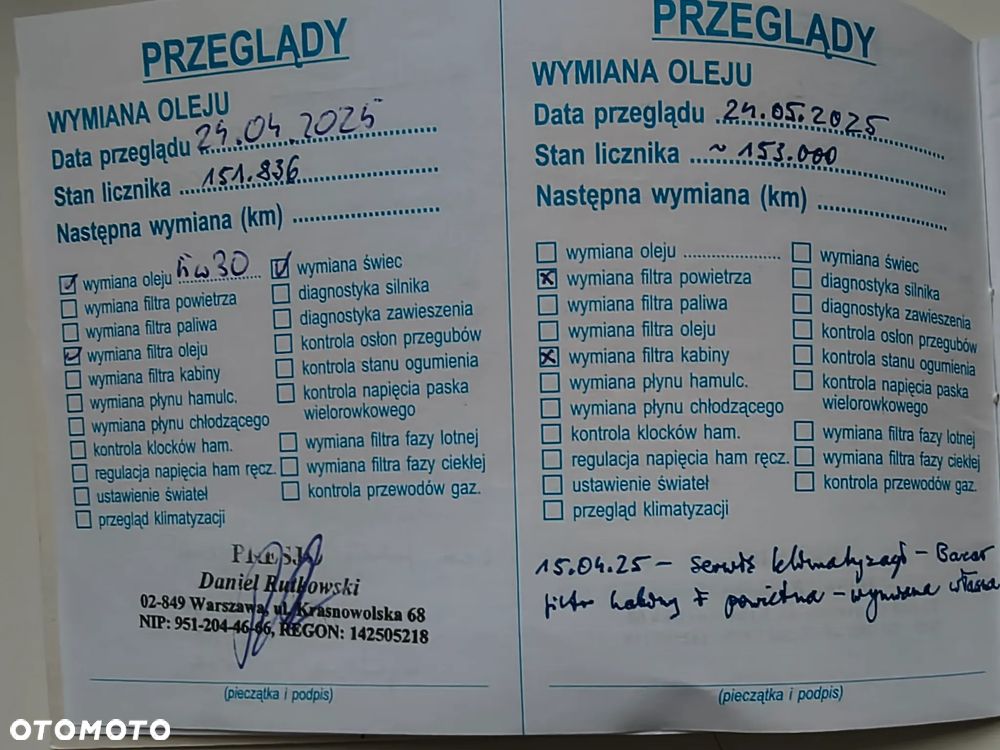 PRZEGLĄDY
WYMIANA OLEJU
Data przeglądu 24.04.2025
Stan licznika 151.836
Następna wymiana (km)
wymiana oleju 5w30
wymiana filtra powietrza
wymiana filtra paliwa
wymiana filtra oleju
wymiana filtra kabiny
wymiana płynu hamulc.
wymiana płynu chłodzącego
kontrola klocków ham.
regulacja napięcia ham ręcz.
ustawienie świateł
przegląd klimatyzacji
wymiana świec
diagnostyka silnika
diagnostyka zawieszenia
kontrola osłon przegubów
kontrola stanu ogumienia
kontrola napięcia paska
wielorowkowego
wymiana filtra fazy lotnej
wymiana filtra fazy ciekłej
kontrola przewodów gaz.
Daniel Rutkowski
02-849 Warszawa, ul. Krasnowolska 68
NIP: 951-204-46-66, REGON: 142505218
(pieczątka i podpis)
PRZEGLĄDY
WYMIANA OLEJU
Data przeglądu 24.05.2025
Stan licznika ~ 153.000
Następna wymiana (km)
wymiana oleju
wymiana filtra powietrza
wymiana filtra paliwa
wymiana filtra oleju
wymiana filtra kabiny
wymiana płynu hamulc.
wymiana płynu chłodzącego
kontrola klocków ham.
regulacja napięcia ham ręcz.
ustawienie świateł
przegląd klimatyzacji
wymiana świec
diagnostyka silnika
diagnostyka zawieszenia
kontrola osłon przegubów
kontrola stanu ogumienia
kontrola napięcia paska
wielorowkowego
wymiana filtra fazy lotnej
wymiana filtra fazy ciekłej
kontrola przewodów gaz.
15.04.25 – serwis klimatyzacji –
filtr kabiny + powietrza – wymiana własna
(pieczątka i podpis)
OTOMOTO